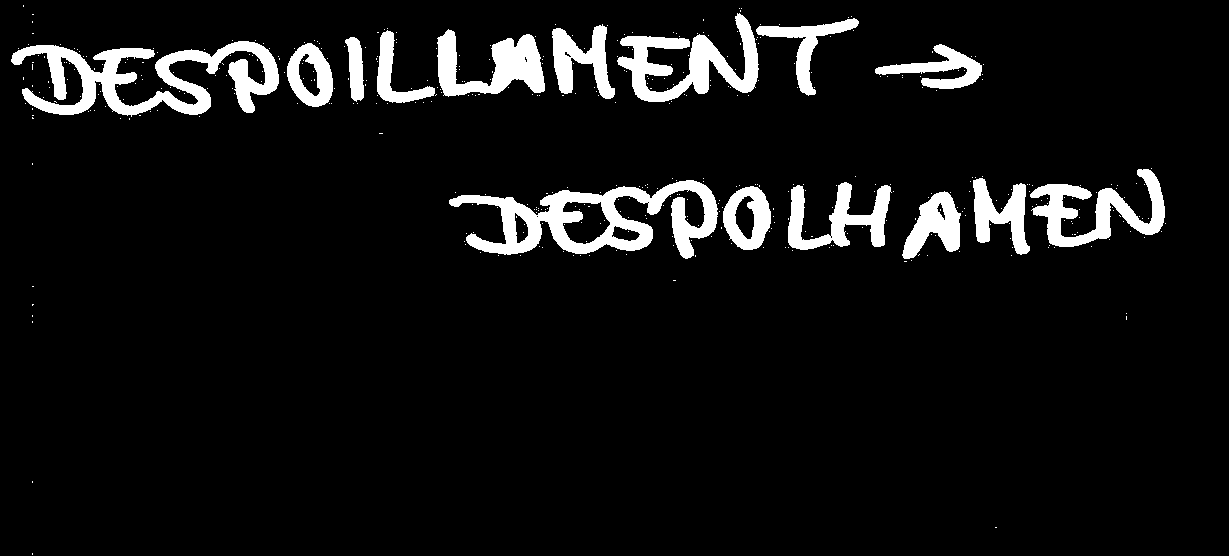 DESPOILLAMENT →
DESPOLHAMEN